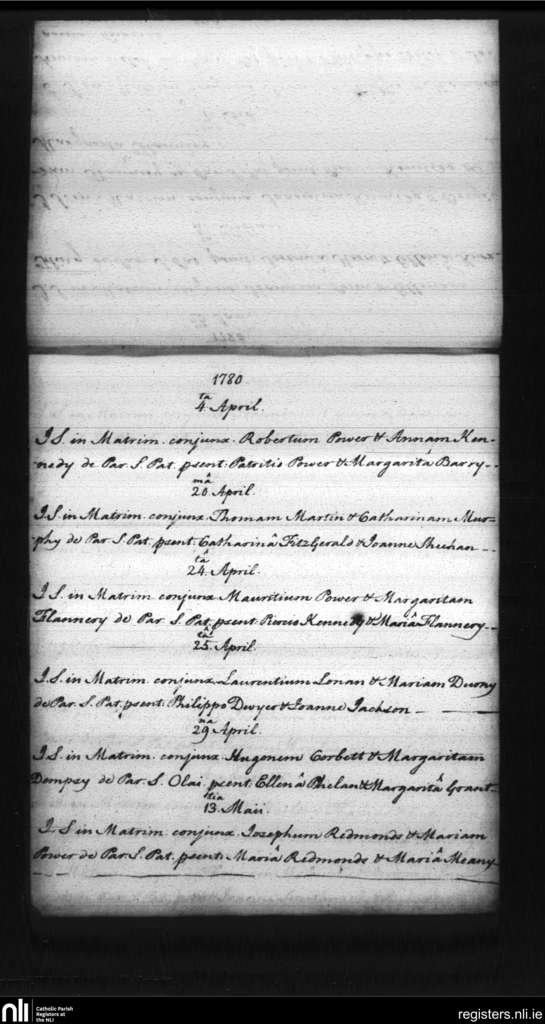 1780
4.ta April.
I S. in Matrim. conjunx. Robertum Power & Annam Ken-
nedy de Par. S. Pat. psent. Patritio Power & Margaritâ Barry--
20.mâ April.
I S. in Matrim. conjunx. Thomam Martin & Catharinam Mur-
phy de Par. S. Pat. psent. Catharinâ FitzGerald & Joanne Sheehan --
24.tâ April.
I S. in Matrim. conjunx Mauritium Power & Margaritam
Flannery de Par. S. Pat. psent. Piercio Kennedy & Mariâ Flannery--
25.tâ April.
I.S. in Matrim. conjunx. Laurentium Lonan & Mariam
de Par. S. Pat. psent. Philippo Dwyer & Joanne Jackson
29.na April.
I.S. in Matrim. conjunx. Hugonem Corbett & Margaritam
Dempsy de Par. S. Olai. psent. Ellenâ Phelan & Margaritâ Grant-
13.tia Maii.
I. S in Matrim. conjunx. Josephum Redmonds & Mariam
Power de Par. S. Pat. psent. Mariâ Redmonds & Mariâ Meany
nli Catholic Parish
Registers at
the NLI
registers.nli.ie